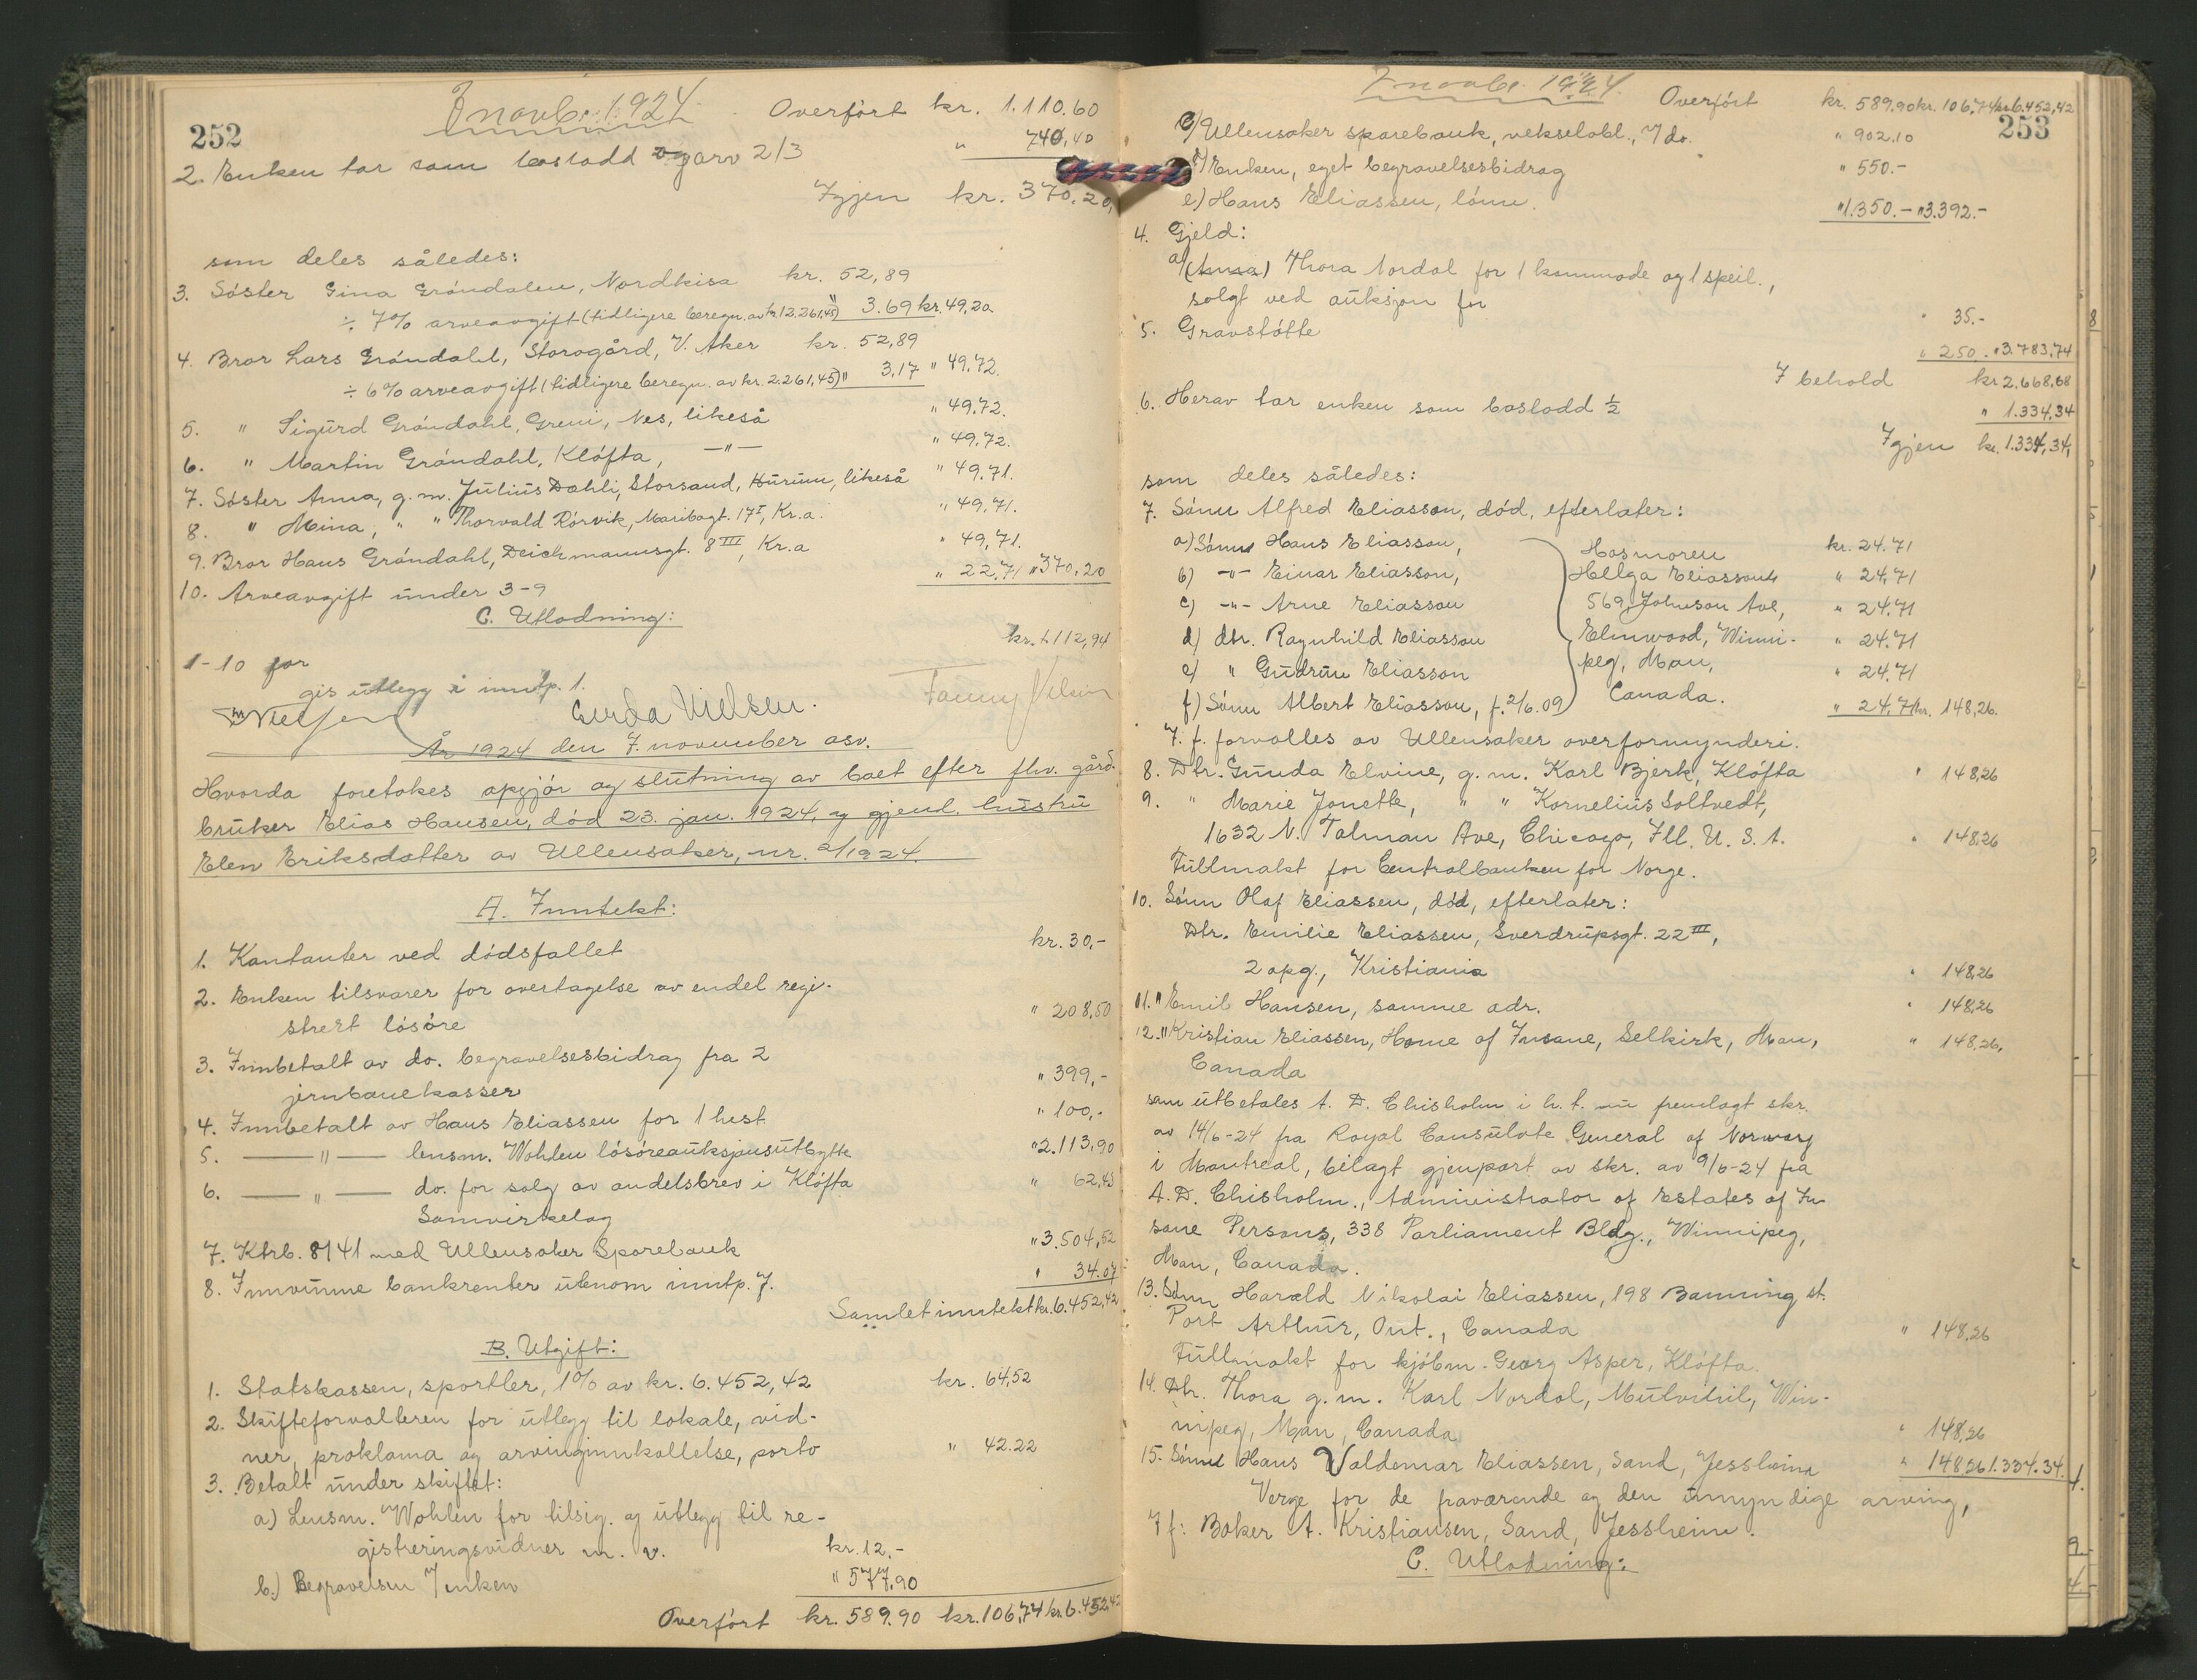 252
7 novbr. 1924.
Overført kr. 1.110.60
2. Enken tar som boslodd og arv 2/3 " 740,40
Igjen kr. 370.20,
som deles således:
3. Søster Gina Grøndalen, Nordkisa kr. 52,89
÷ 7% arveavgift (tidligere beregn. av kr. 12.261,45) " 3.69 kr. 49,20
4. Bror Lars Grøndahl, Storogård, V. Aker kr. 52,89
÷ 6% arveavgift (tidligere beregn. av kr. 2.261,45) " 3,17 " 49,72.
5. " Sigurd Grøndahl, Greni, Nes, likeså " 49,72.
6. " Martin Grøndahl, Kløfta, —"— " 49,72.
7. Søster Anna, g.m. Julius Dæhli, Storsand, Hurum, likeså " 49,71.
8. " Mina, " " Thorvald Rørvik, Maribogt. 17 I, Kr.a. " 49,71.
9. Bror Hans Grøndahl, Deichmannsgt. 8 III, Kr.a " 49,71.
10. Arveavgift under 3-9 " 22,71 " 370,20
C. Utlodning:
1-10 for kr. 1.112,94
gis utlegg i inntp. 1.
Gerda Nielsen. Fanny Nilsen
År 1924 den 7. november asv.
Hvorda foretokes opgjør og slutning av boet efter fhv. gård-
bruker Elias Hansen, død 23. jan. 1924, og gjenl. hustru
Elen Eriksdatter av Ullensaker, nr. 2/1924.
A. Inntekt:
1. Kontanter ved dødsfallet kr. 30,-
2. Enken tilsvarer for overtagelse av endel regi-
strert løsøre " 208,50
3. Innbetalt av do. begravelsesbidrag fra 2
jernbanekasser " 399,-
4. Innbetalt av Hans Eliassen for 1 hest " 100,-
5. —"— lensm. Wohlen løsøreauksjonsutbytte " 2.113,90
6. —"— do. for salg av andelsbrev i Kløfta " 62,43
Samvirkelag
7. Ktrb. 8141 med Ullensaker Sparebank " 3.504,52
8. Innvunne bankrenter utenom inntp. 7. " 34.07
Samlet inntekt kr. 6.452,42
B. Utgift:
1. Statskassen, sportler, 1% av kr. 6.452,42 kr. 64,52
2. Skifteforvalteren for utlegg til lokale, vid-
ner, proklama og arvinginnkallelse, porto " 42.22
3. Betalt under skiftet:
a) Lensm. Wohlen for tilsig. og utlegg til re-
gistreringsvidner m. v. kr. 12,-
b.) Begravelsen / enken " 577,90
Overført kr. 589.90 kr. 106,74 kr. 6.452,42
7 novbr. 1924.
253
Overført kr. 589.90 kr. 106,74 kr. 6.452,42
c) Ullensaker sparebank, vekselobl., / do. " 902.10
d) Enken, eget begravelsesbidrag " 550.-
e) Hans Eliassen, lønn. " 1.350.- " 3.392.-
4. Gjeld:
a) Thora Nordal for 1 kommode og 1 speil.,
solgt ved auksjon for " 35.-
5. Gravstøtte " 250.- " 3.783,74
I behold kr. 2.668,68
6. Herav tar enken som boslodd ½ " 1.334,34
Igjen kr. 1.334,34,
som deles således:
7. Sønn Alfred Eliasson, død, efterlater:
a) Sønn Hans Eliasson, Hosmoren kr. 24.71
b) -"- Einar Eliasson, Hellga Eliasson, " 24,71
c) -"- Arne Eliasson 569 Johnson Ave, " 24.71
d) dtr. Ragnhild Eliasson Elmwood, Winni- " 24.71
e) " Gudrun Eliasson peg, Man, " 24.71
f) Sønn Albert Eliasson, f. 2/6.09 Canada. " 24,71 kr. 148,26.
7. f. forvaltes av Ullensaker overformynderi.
8. Dtr. Gunda Elvine, g.m. Karl Bjerk, Kløfta " 148,26
9. " Marie Jonette, " " Kornelius Soltvedt,
1632 N. Talman Ave, Chicago, Ill. U. S. A. " 148,26
Fullmakt for Centralbanken for Norge.
10. Sønn Olaf Eliassen, død, efterlater:
Dtr. Emilie Eliassen, Sverdrupsgt. 22 III,
2 opg., Kristiania " 148,26
11. " Emil Hansen, samme adr. " 148,26
12. " Kristian Eliassen, Home of Insane, Selkirk, Man, " 148,26,
Canada
som utbetales A. D. Chisholm i h. t. nu fremlagt skr.
av 14/6-24 fra Royal Consulate General of Norway
i Montreal, bilagt gjenpart av skr. av 9/6-24 fra
A. D. Chisholm., Administrator of Estates of In
sane Persons, 338 Parliament Bldg., Winnipeg,
Man, Canada.
13. Sønn Harald Nikolai Eliassen, 198 Banning st.
Port Arthur, Ont., Canada " 148.26
Fullmakt for kjøbm. Georg Asper, Kløfta.
14. Dtr. Thora g.m. Karl Nordal, Mulvihil, Win-
nipeg, Man, Canada " 148,26
15. Sønn Hans Valdemar Eliassen, Sand, Jessheim " 148,26 1.334.34.
Verge for de fraværende og den umyndige arving,
7 f: Baker A. Kristiansen, Sand, Jessheim.
C. Utlodning: